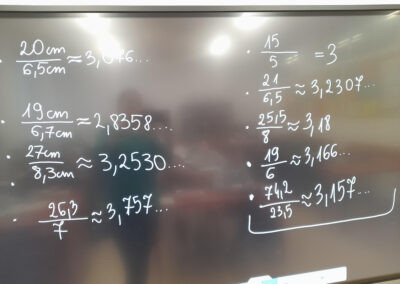 20cm/6,5cm ≈ 3,076...
19cm/6,7cm ≈ 2,8358....
27cm/8,3cm ≈ 3,2530....
26,3/7 ≈ 3,757...
15/5 = 3
21/6,5 ≈ 3,2307...
25,5/8 ≈ 3,18
19/6 ≈ 3,166...
74,2/23,5 ≈ 3,157...